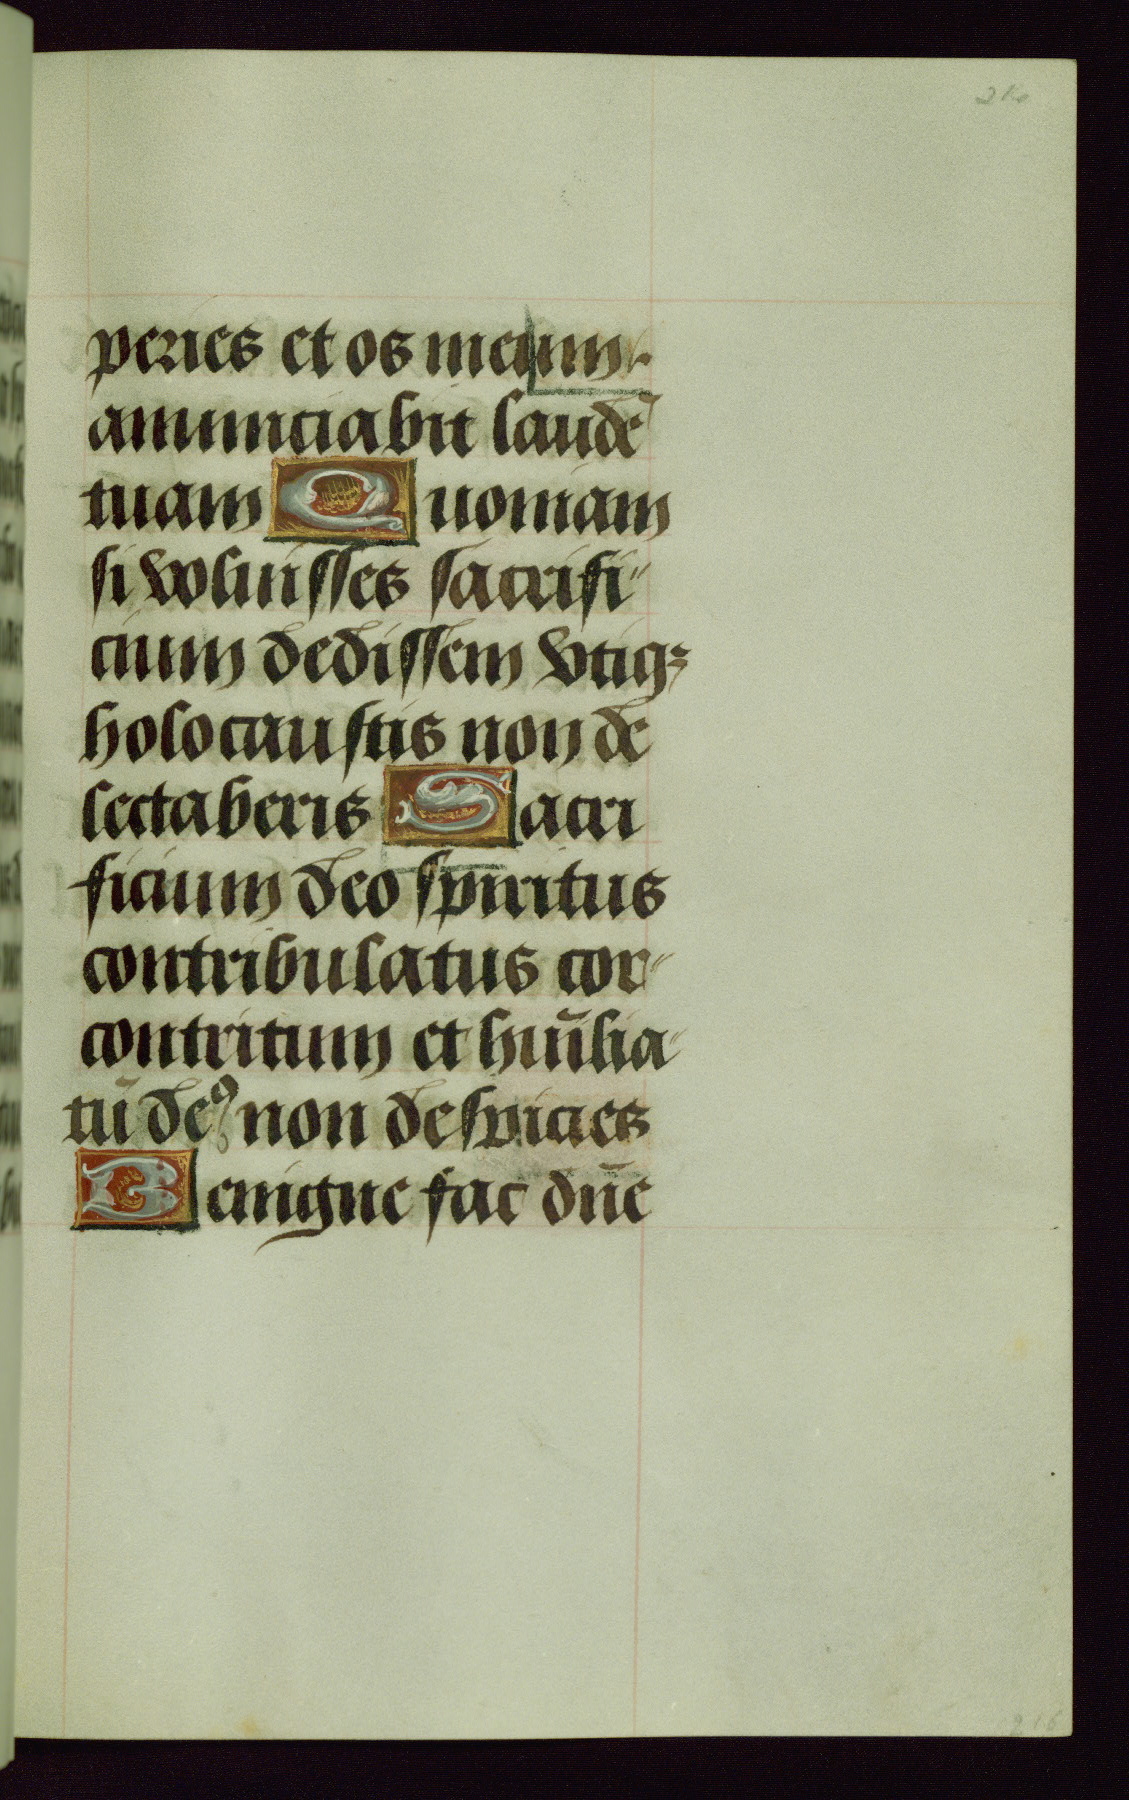 peries et os meum
anunnciabit laudē
tuam Quoniam
si voluisses sacrifi
cium dedissem vtiqꝫ
holocaustis non de
lectaberis Sacri
ficium deo spiritus
contribulatus cor
contritum et hūilia
tū deꝰ non despicies
Benigne fac dn̄e